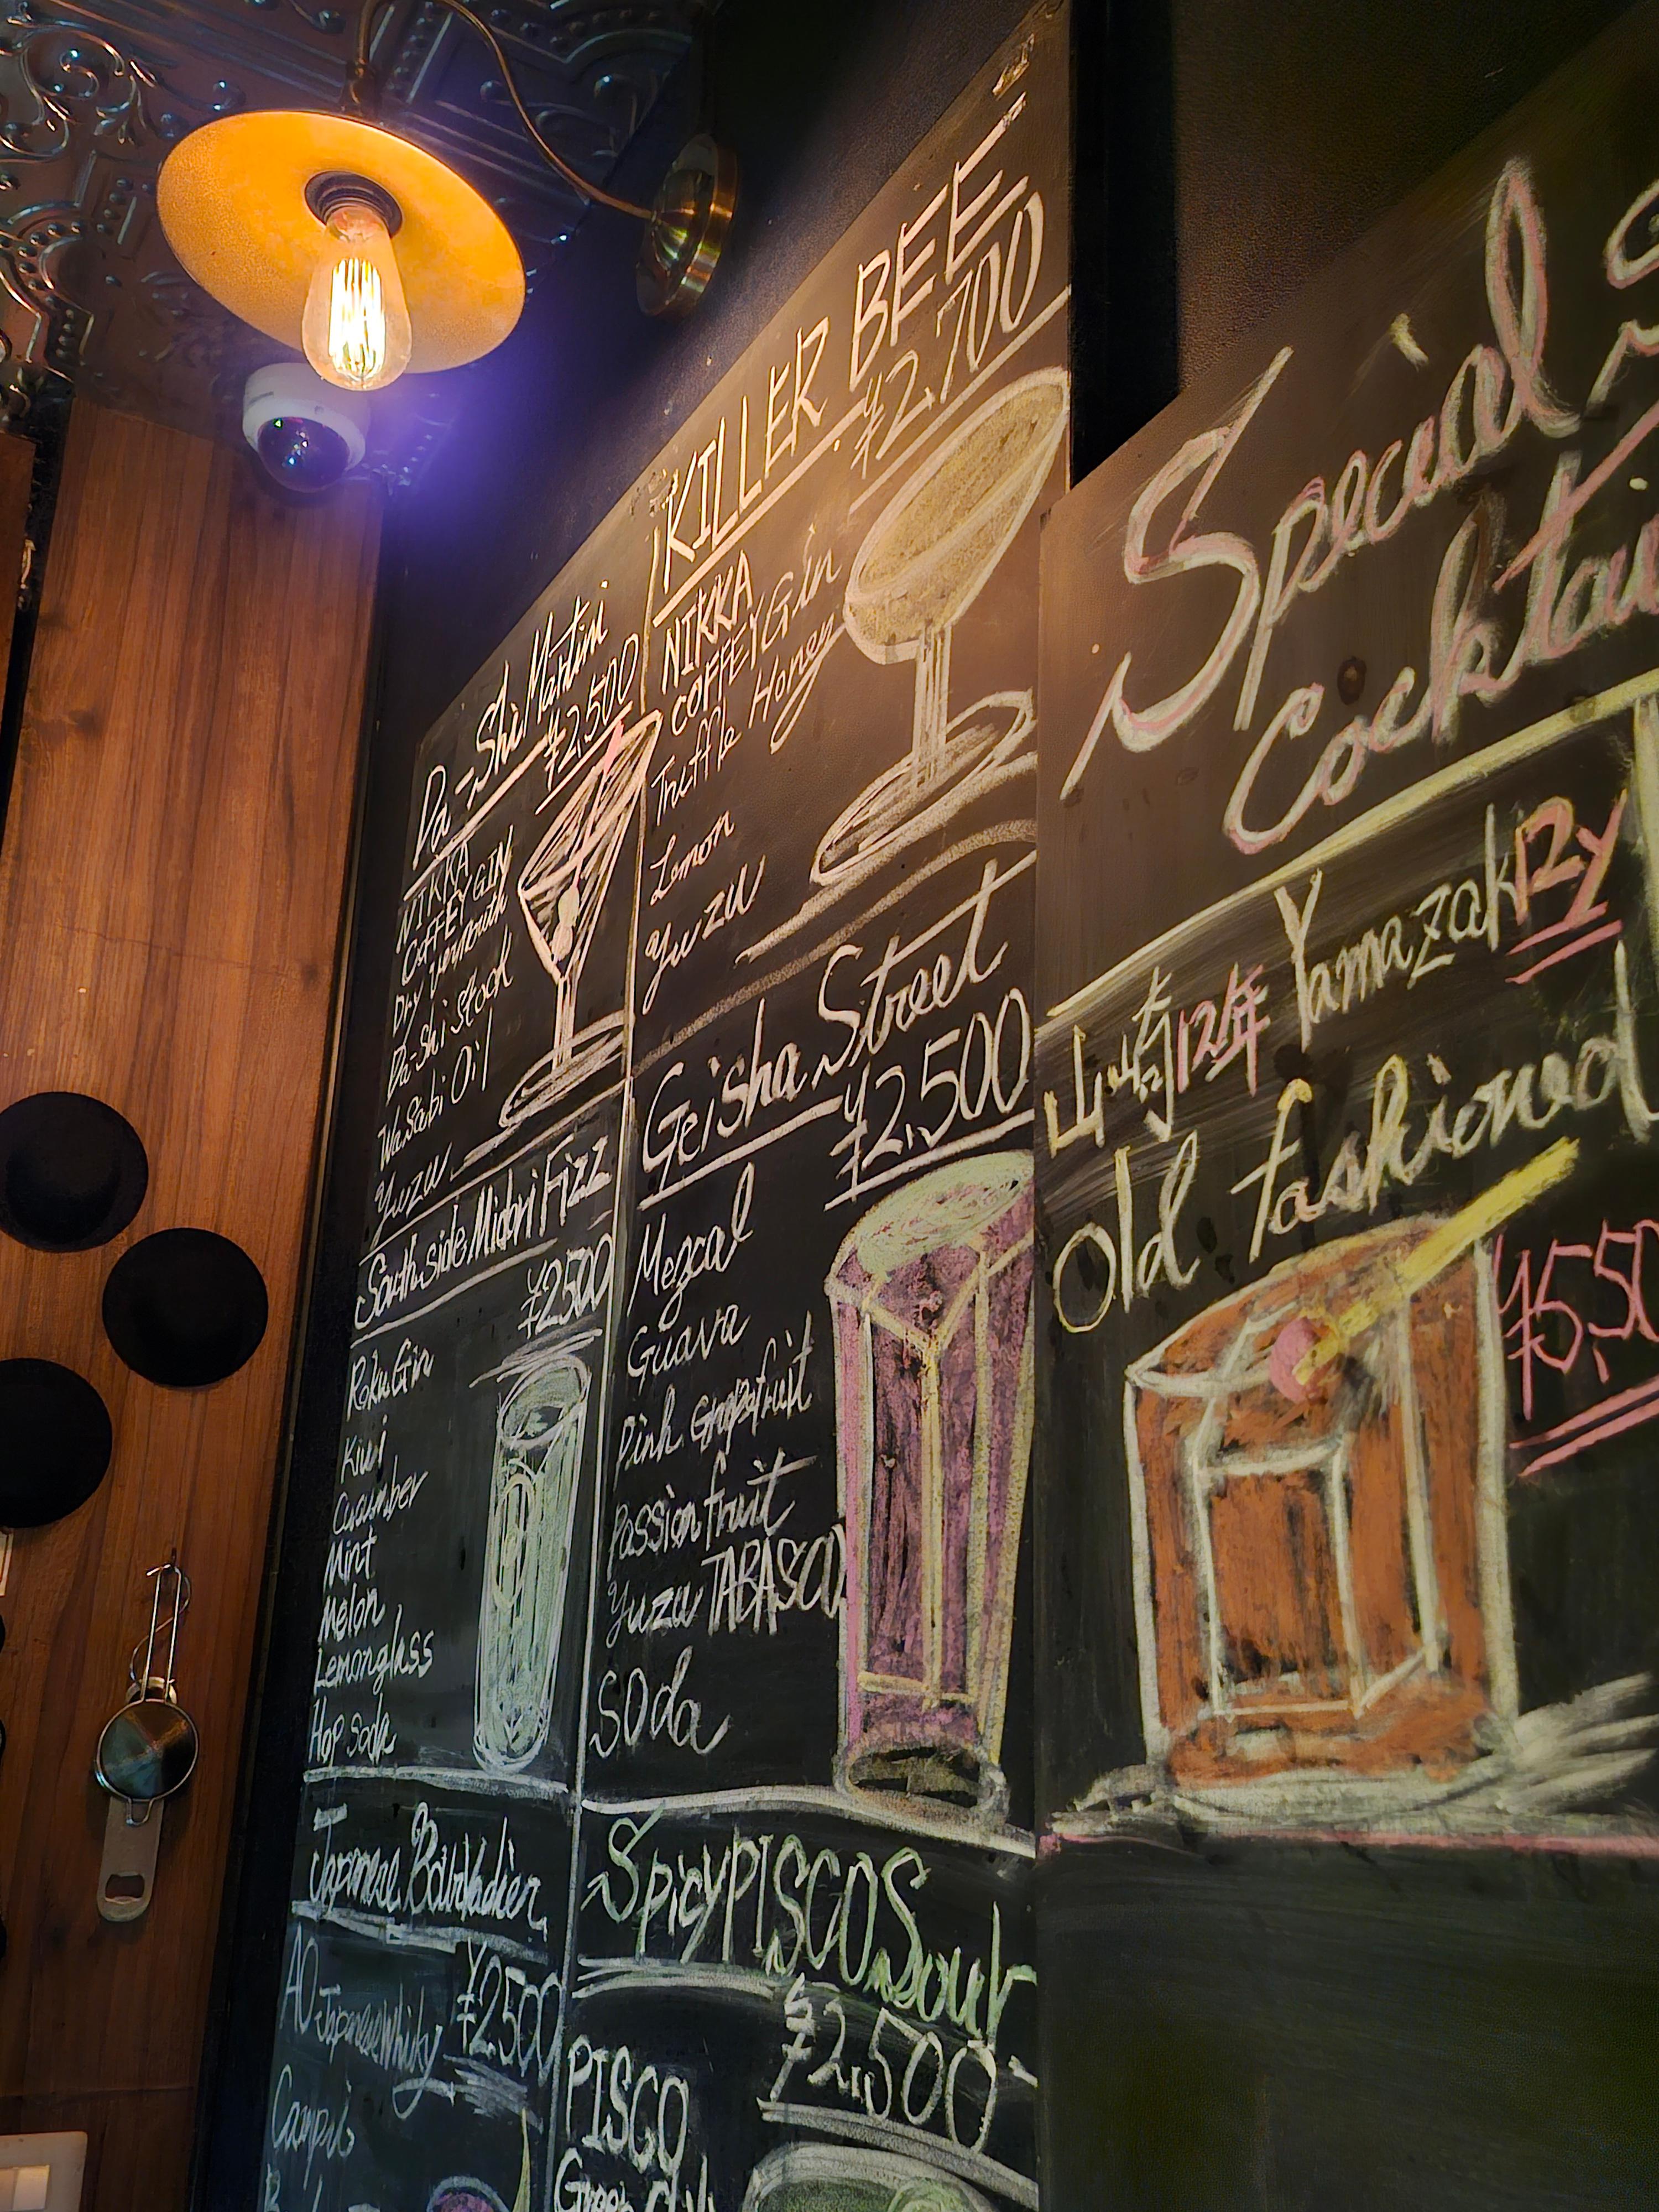 Da-Shi Martini
¥2,500
NIKKA
COFFEY GIN
Dry Vermouth
Da-Shi Stock
Wasabi Oil
Yuzu
KILLER BEE
¥2,700
NIKKA
COFFEY Gin
Truffle Honey
Lemon
Yuzu
Southside Midori Fizz
¥2500
Roku Gin
Kiwi
Cucumber
Mint
Melon
Lemonglass
Hop Soda
Geisha Street
¥2,500
Mezcal
Guava
Pink Grapefruit
Passion fruit
Yuzu TABASCO
Soda
Japanese Boulvadier
AO Japanese Whisky ¥2500
Campari
Spicy PISCO Sour
¥2,500
PISCO
Green
Special
Cocktai
山崎12年 Yamazaki 12y
Old fashioned
¥5,50